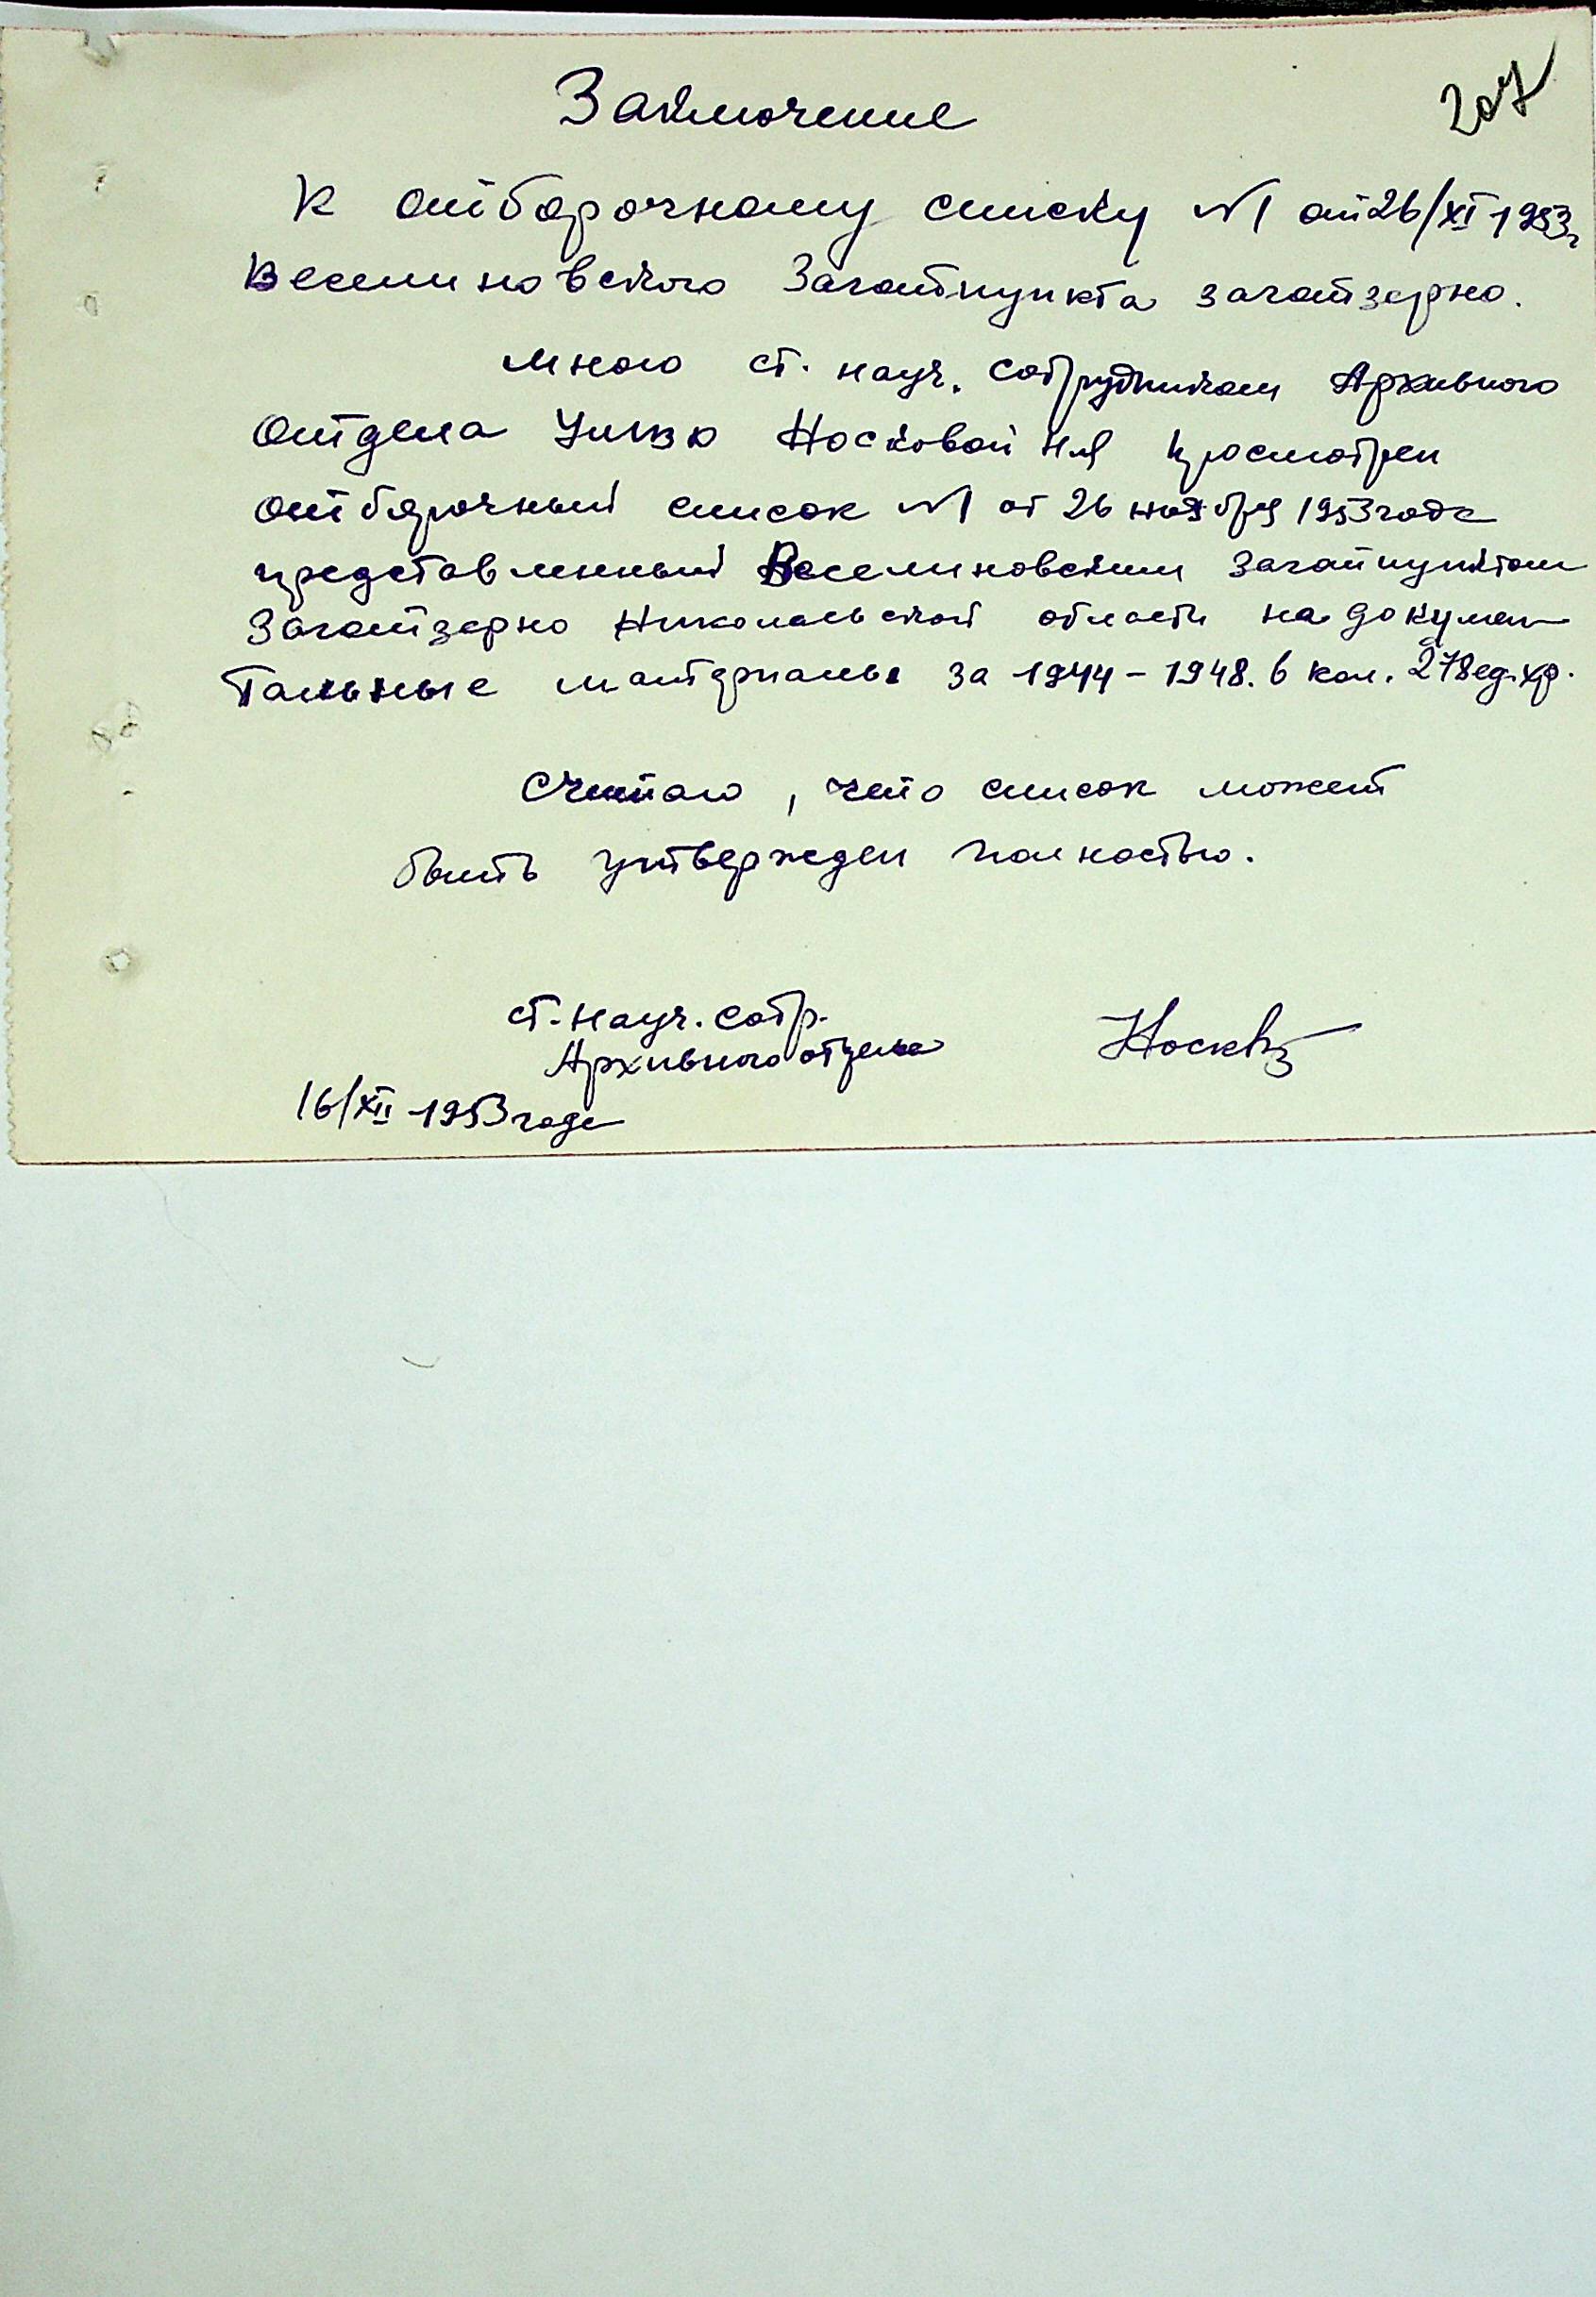 207
Заключение
К отборочному списку №1 от 26/XI 1953г
Веселиновского Заготпункта заготзерно.
Мною ст. науч. сотрудником Архивного
отдела УМВД Носковой просмотрен
отборочный список №1 от 26 ноября 1953 года
представленный Веселиновским заготпунктом
Заготзерно Николаевской области на докумен
тальные материалы за 1944-1948. в кол. 278 ед. хр.
Считаю, что список может
быть утвержден полностью.
ст. науч. сотр.
Архивного отдела
16/XII-1953 года